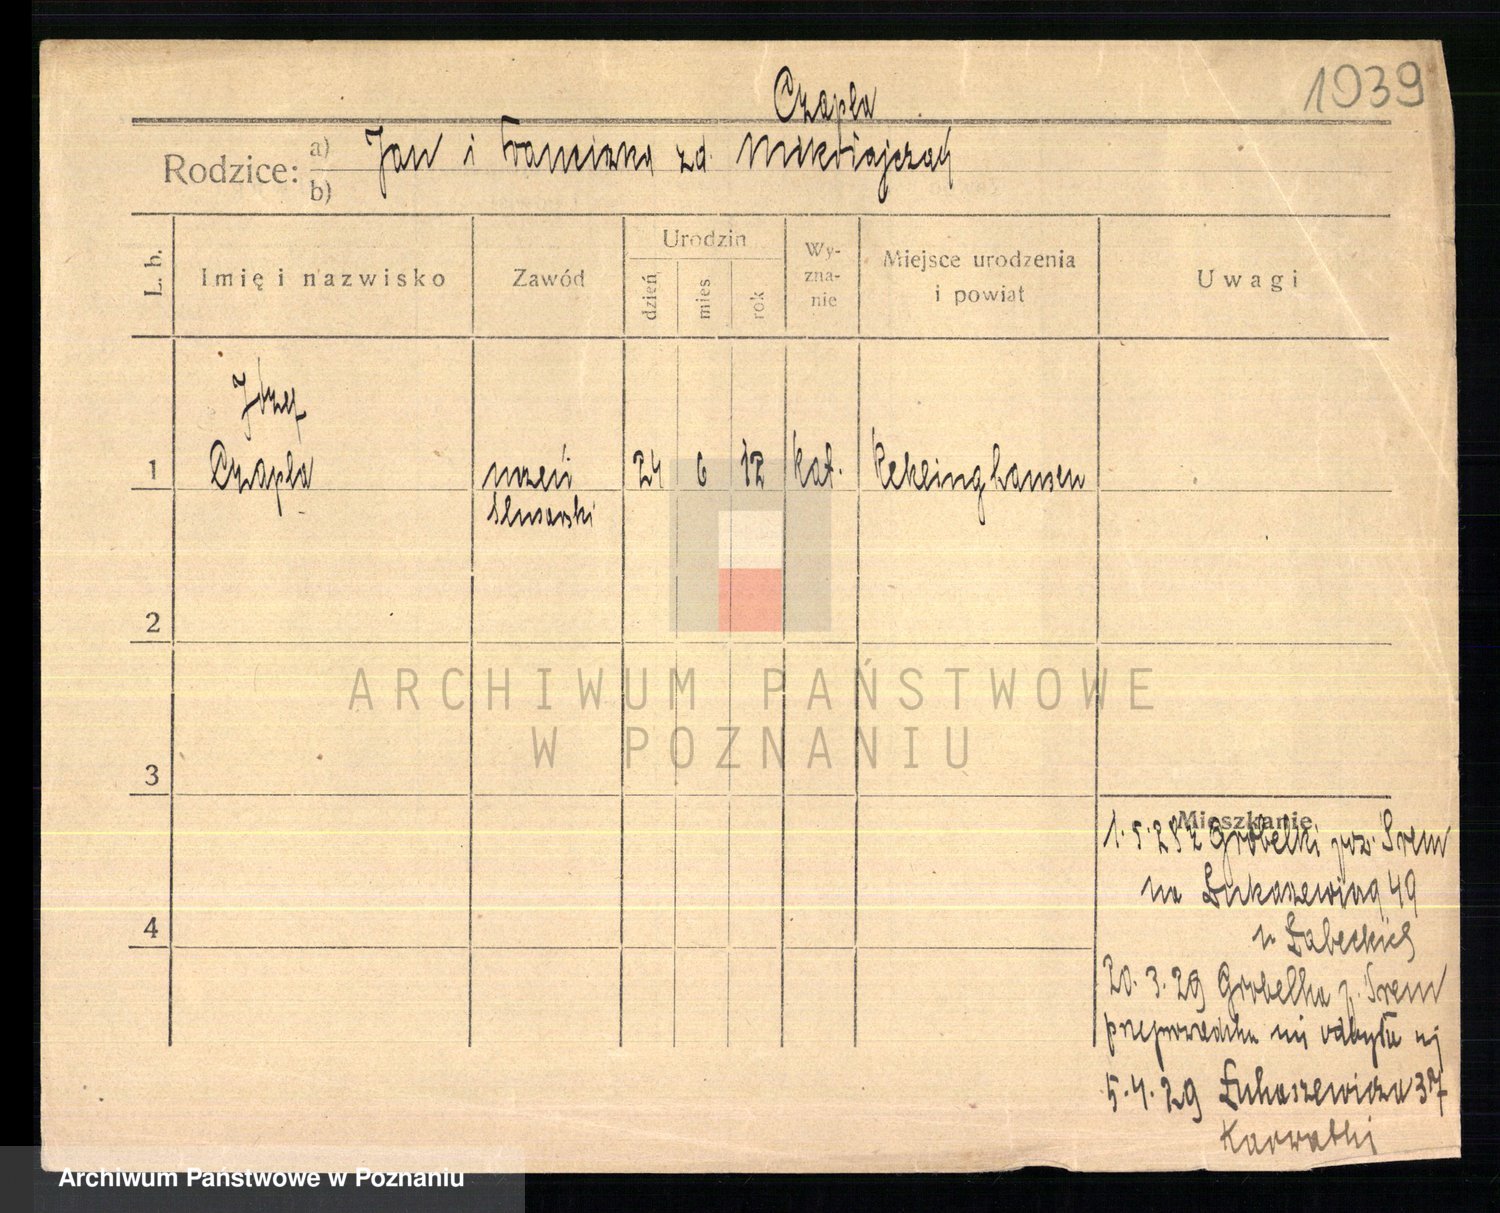 1939
Czapla
Rodzice: a) Jan i Franciszka zd. Mikołajczak
b)
L. b.
Imię i nazwisko
Zawód
Urodzin
dzień
mies
rok
Wy-
zna-
nie
Miejsce urodzenia
i powiat
Uwagi
Józef
1 Czapla uczeń 24 6 12 kat. Reklinghausen
ślusarski
2
3
4
Mieszkanie
1.5.28 z Grobelki pow. Śrem
na Łukaszewicza 49
u Łabeckich
20.3.29 Grobelka p. Śrem
przeprowadzka nie odbyła się
5.4.29 Łukaszewicza 37
Karwatki
ARCHIWUM PAŃSTWOWE
W POZNANIU
Archiwum Państwowe w Poznaniu